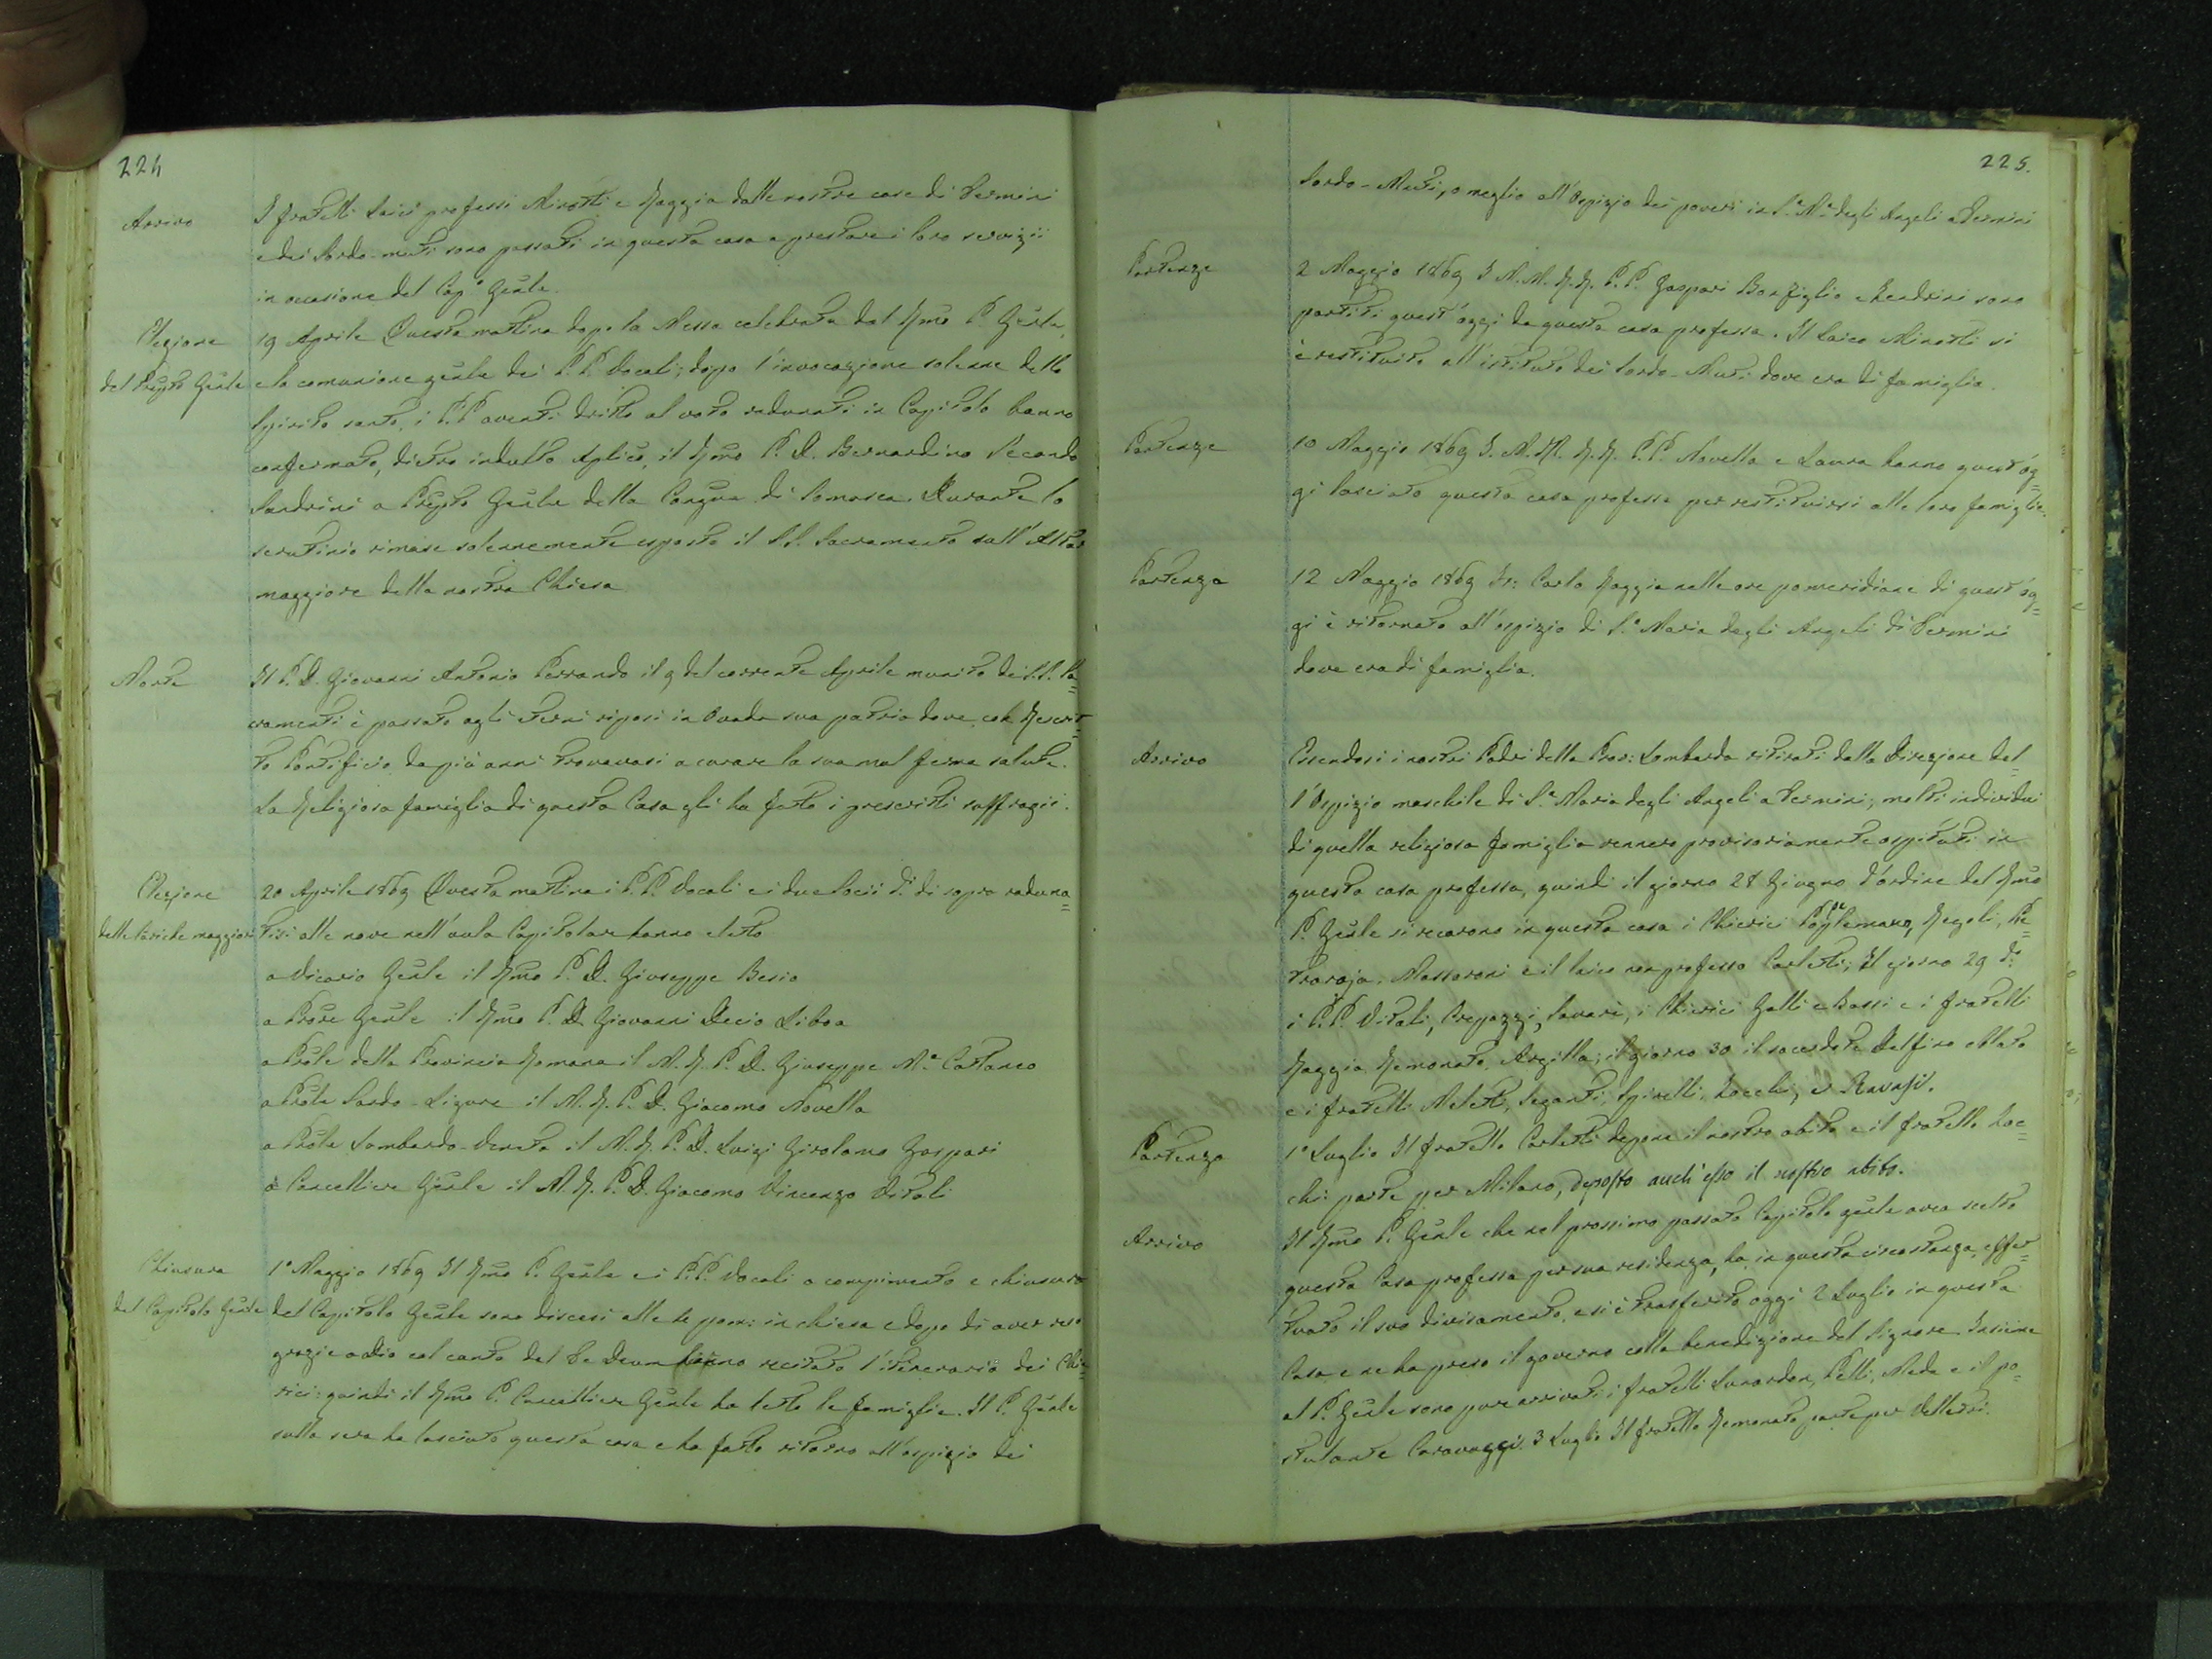 224
Arrivo
I fratelli Laici professi Minotti e Gaggia dalle nostre case di Termini
e dei Sordo-muti sono passati in questa casa a prestare i loro servizii
in occasione del Cap.° Gñle.
Elezione
del Prepto Gñle
19 Aprile Questa mattina dopo la Messa celebrata dal Rmo P. Gñle,
e la comunione gñle dei P.P. Vocali; dopo l'invocazione solenne dello
Spirito santo, i P.P. aventi dritto al voto radunati in Capitolo hanno
confermato, dietro indulto Aplico, il Rmo P. D. Bernardino Secondo
Sandrini a Prepto Gñle della Congne di Somasca. Durante lo
scrutinio rimase solennemente esposto il S.S. Sacramento sull'Altar
maggiore della nostra Chiesa
Morte
Il P. D. Giovanni Antonio Ferrando il 9 del corrente Aprile munito dei S.S. Sa=
cramenti è passato agli eterni riposi in Ovada sua patria dove, col Rescrit=
to Pontificio, da più anni trovavasi a curare la sua mal ferma salute.
La Religiosa famiglia di questa Casa gli ha fatto i prescritti suffragii.
Elezione
delle cariche maggiori
20 Aprile 1869 Questa mattina i P.P. Vocali e i due Socii di di sopra raduna=
tisi alle nove nell'aula Capitolare hanno eletto
a Vicario Gñle il Rmo P. D. Giuseppe Besio
a Prore Gñle il Rmo P. D. Giovanni Decio Libois
a Prole della Provincia Romana il M. R. P. D. Giuseppe M.a Cattaneo
a Prole Sardo-Ligure il M. R. P. D. Giacomo Novella
a Prole Lombardo-Veneto il M. R. P. D. Luigi Girolamo Gaspari
a Cancelliere Gñle il M. R. P. D. Giacomo Vincenzo Vitali
Chiusura
del Capitolo Gñle
1° Maggio 1869 Il Rmo P. Gñle e i P.P. Vocali a compimento e chiusura
del Capitolo Gñle sono discesi alle pom: in chiesa e dopo di aver reso
grazie a Dio col canto del Te Deum hanno recitato l'itinerario dei Chie=
rici: quindi il Rmo P. Cancelliere Gñle ha letto le famiglie. Il P. Gñle
sulla sera ha lasciato questa casa e ha fatto ritorno all'ospizio dei
225.
Sordo-Muti, o meglio all'Ospizio dei poveri in S.a M.a degli Angeli a Termini
Partenze
2 Maggio 1869 I M.M. R.R. P.P. Gaspari Bonfiglio e Sandrini sono
partiti quest'oggi da questa casa professa. Il Laico Minotti si
è restituito all'istituto dei Sordo-Muti dove era di famiglia.
Partenze
10 Maggio 1869 I. M.M. R.R. P.P. Novella e Laura hanno quest'og=
gi lasciato questa casa professa per restituirsi alle loro famiglie.
Partenza
12 Maggio 1869 Fr: Carlo Gaggia nelle ore pomeridiane di quest'og=
gi è ritornato all'ospizio di S.a Maria degli Angeli di Termini
dove era di famiglia.
Arrivo
Essendosi i nostri Padri della Prov: Lombarda ritirati dalla Direzione del=
l'Ospizio maschile di S.a Maria degli Angeli a Termini, molti individui
di quella religiosa famiglia vennero provisoriamente ospitati in
questa casa professa, quindi il giorno 28 Giugno d'ordine del Rmo
P. Gñle si recarono in questa casa i Chierici Regoli, Pe=
traroja. Massaroni e il laico non professo Carletti; Il giorno 29 do
i P.P. Vitali, Crepazzi, Savarè, i Chierici Galli e Bassi e i fratelli
Gaggia Remonato, Argilla; il giorno 30 il sacerdote Delfino oblato
e i fratelli Meletti, Seganti, Spirelli, Zocchi, e Ravasi.
Partenza
1° Luglio Il fratello Carletti depone il nostro abito e il fratello Zoc=
chi parte per Milano, deposto anch'esso il nostro abito.
Arrivo
Il Rmo P. Gñle che nel prossimo passato Capitolo gñle avea scelto
questa Casa professa per sua residenza, ha in questa circostanza, effet=
tuato il suo divisamento, e si è trasferito oggi 2 Luglio in questa
Casa e ne ha preso il governo colla benedizione del Signore. Insieme
al P. Gñle sono pure arrivati i fratelli Lunardon, Pelli, Meda e il po=
stulante Caravaggi. 3 Luglio Il fratello Remonato parte per Velletri.